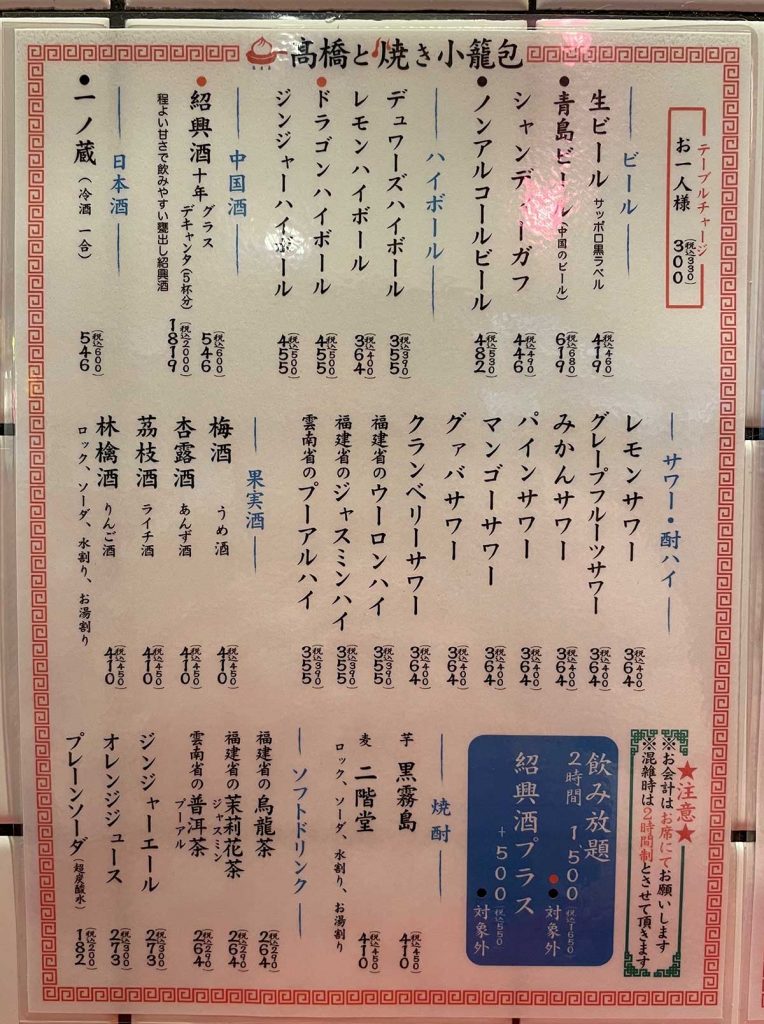 髙橋と焼き小籠包
テーブルチャージ
お一人様 300(税込330)
ビール
生ビール サッポロ黒ラベル 419(税込460)
●青島ビール(中国のビール) 619(税込680)
シャンディーガフ 446(税込490)
●ノンアルコールビール 482(税込530)
ハイボール
デュワーズハイボール 355(税込390)
レモンハイボール 364(税込400)
●ドラゴンハイボール 455(税込500)
ジンジャーハイボール 455(税込500)
中国酒
●紹興酒十年 グラス 546(税込600)
デキャンタ(5杯分) 1819(税込2000)
程よい甘さで飲みやすい甕出し紹興酒
日本酒
●一ノ蔵(冷酒 一合) 546(税込600)
サワー・酎ハイ
レモンサワー 364(税込400)
グレープフルーツサワー 364(税込400)
みかんサワー 364(税込400)
パインサワー 364(税込400)
マンゴーサワー 364(税込400)
グァバサワー 364(税込400)
クランベリーサワー 364(税込400)
福建省のウーロンハイ 355(税込390)
福建省のジャスミンハイ 355(税込390)
雲南省のプーアルハイ 355(税込390)
果実酒
梅酒 うめ酒 410(税込450)
杏露酒 あんず酒 410(税込450)
茘枝酒 ライチ酒 410(税込450)
林檎酒 りんご酒 410(税込450)
ロック、ソーダ、水割り、お湯割り
★注意★
※お会計はお席にてお願いします
※混雑時は2時間制とさせて頂きます
飲み放題
2時間 1500(税込1650)
●●対象外
紹興酒プラス
+500(税込550)
●対象外
焼酎
芋 黒霧島 410(税込450)
麦 二階堂 410(税込450)
ロック、ソーダ、水割り、お湯割り
ソフトドリンク
福建省の烏龍茶 264(税込290)
福建省の茉莉花茶 264(税込290)
ジャスミン
雲南省の普洱茶 264(税込290)
プーアル
ジンジャーエール 273(税込300)
オレンジジュース 273(税込300)
プレーンソーダ(超炭酸水) 182(税込200)